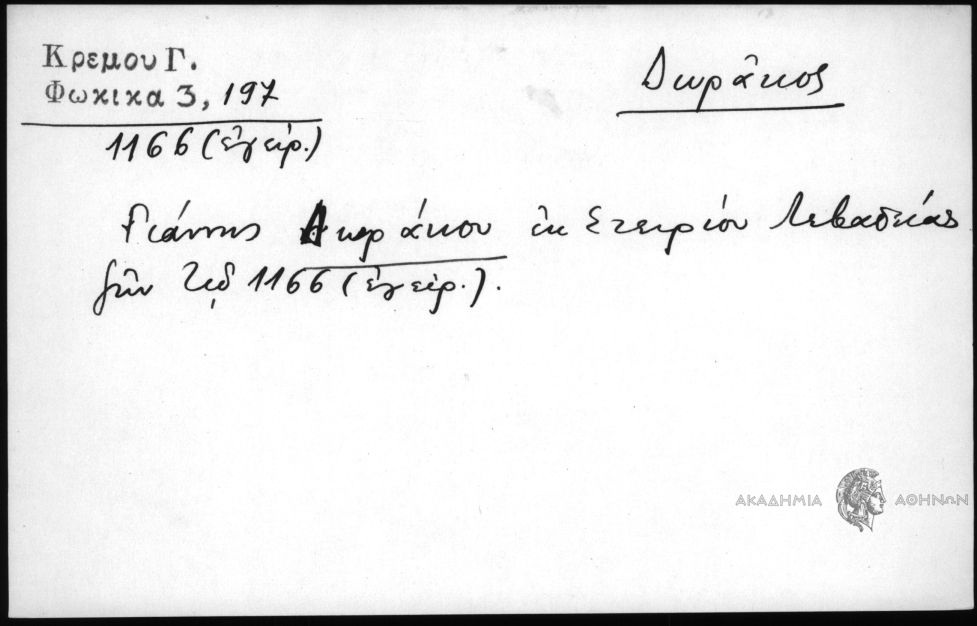 Κρεμου Γ.
Φωκικα 3, 197
1166 (ἐγείρ.)
Δωρᾶκος
Γιάννης Δωράκου ἐκ Στειρίου Λεβαδείας
ζῶν τῷ 1166 (ἐγείρ.).
ΑΚΑΔΗΜΙΑ ΑΘΗΝΩΝ